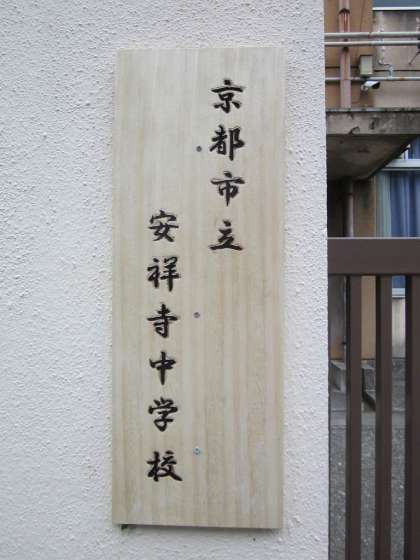 京都市立
安祥寺中学校